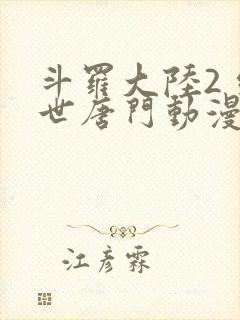 斗羅大陸2
世唐門動漫
江彥霖